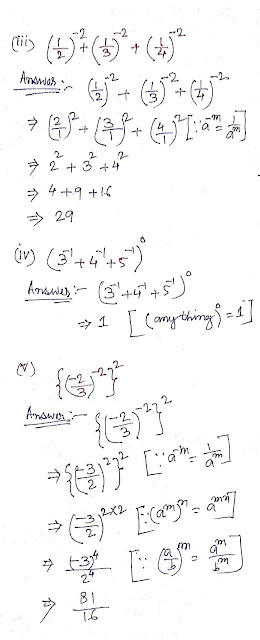 (iii) (1/2)^-2 + (1/3)^-2 + (1/4)^-2
Answer :- (1/2)^-2 + (1/3)^-2 + (1/4)^-2
⇒ (2/1)^2 + (3/1)^2 + (4/1)^2 [∵ a^-m = 1/a^m]
⇒ 2^2 + 3^2 + 4^2
⇒ 4 + 9 + 16
⇒ 29
(iv) (3^-1 + 4^-1 + 5^-1)^0
Answer :- (3^-1 + 4^-1 + 5^-1)^0
⇒ 1 [(any thing)^0 = 1]
(v) {(-2/3)^-2}^2
Answer :- {(-2/3)^-2}^2
⇒ {(-3/2)^2}^2 [∵ a^-m = 1/a^m]
⇒ (-3/2)^2×2 [∵ (a^m)^n = a^mn]
⇒ (-3)^4/2^4 [∵ (a/b)^m = a^m/b^m]
⇒ 81/16